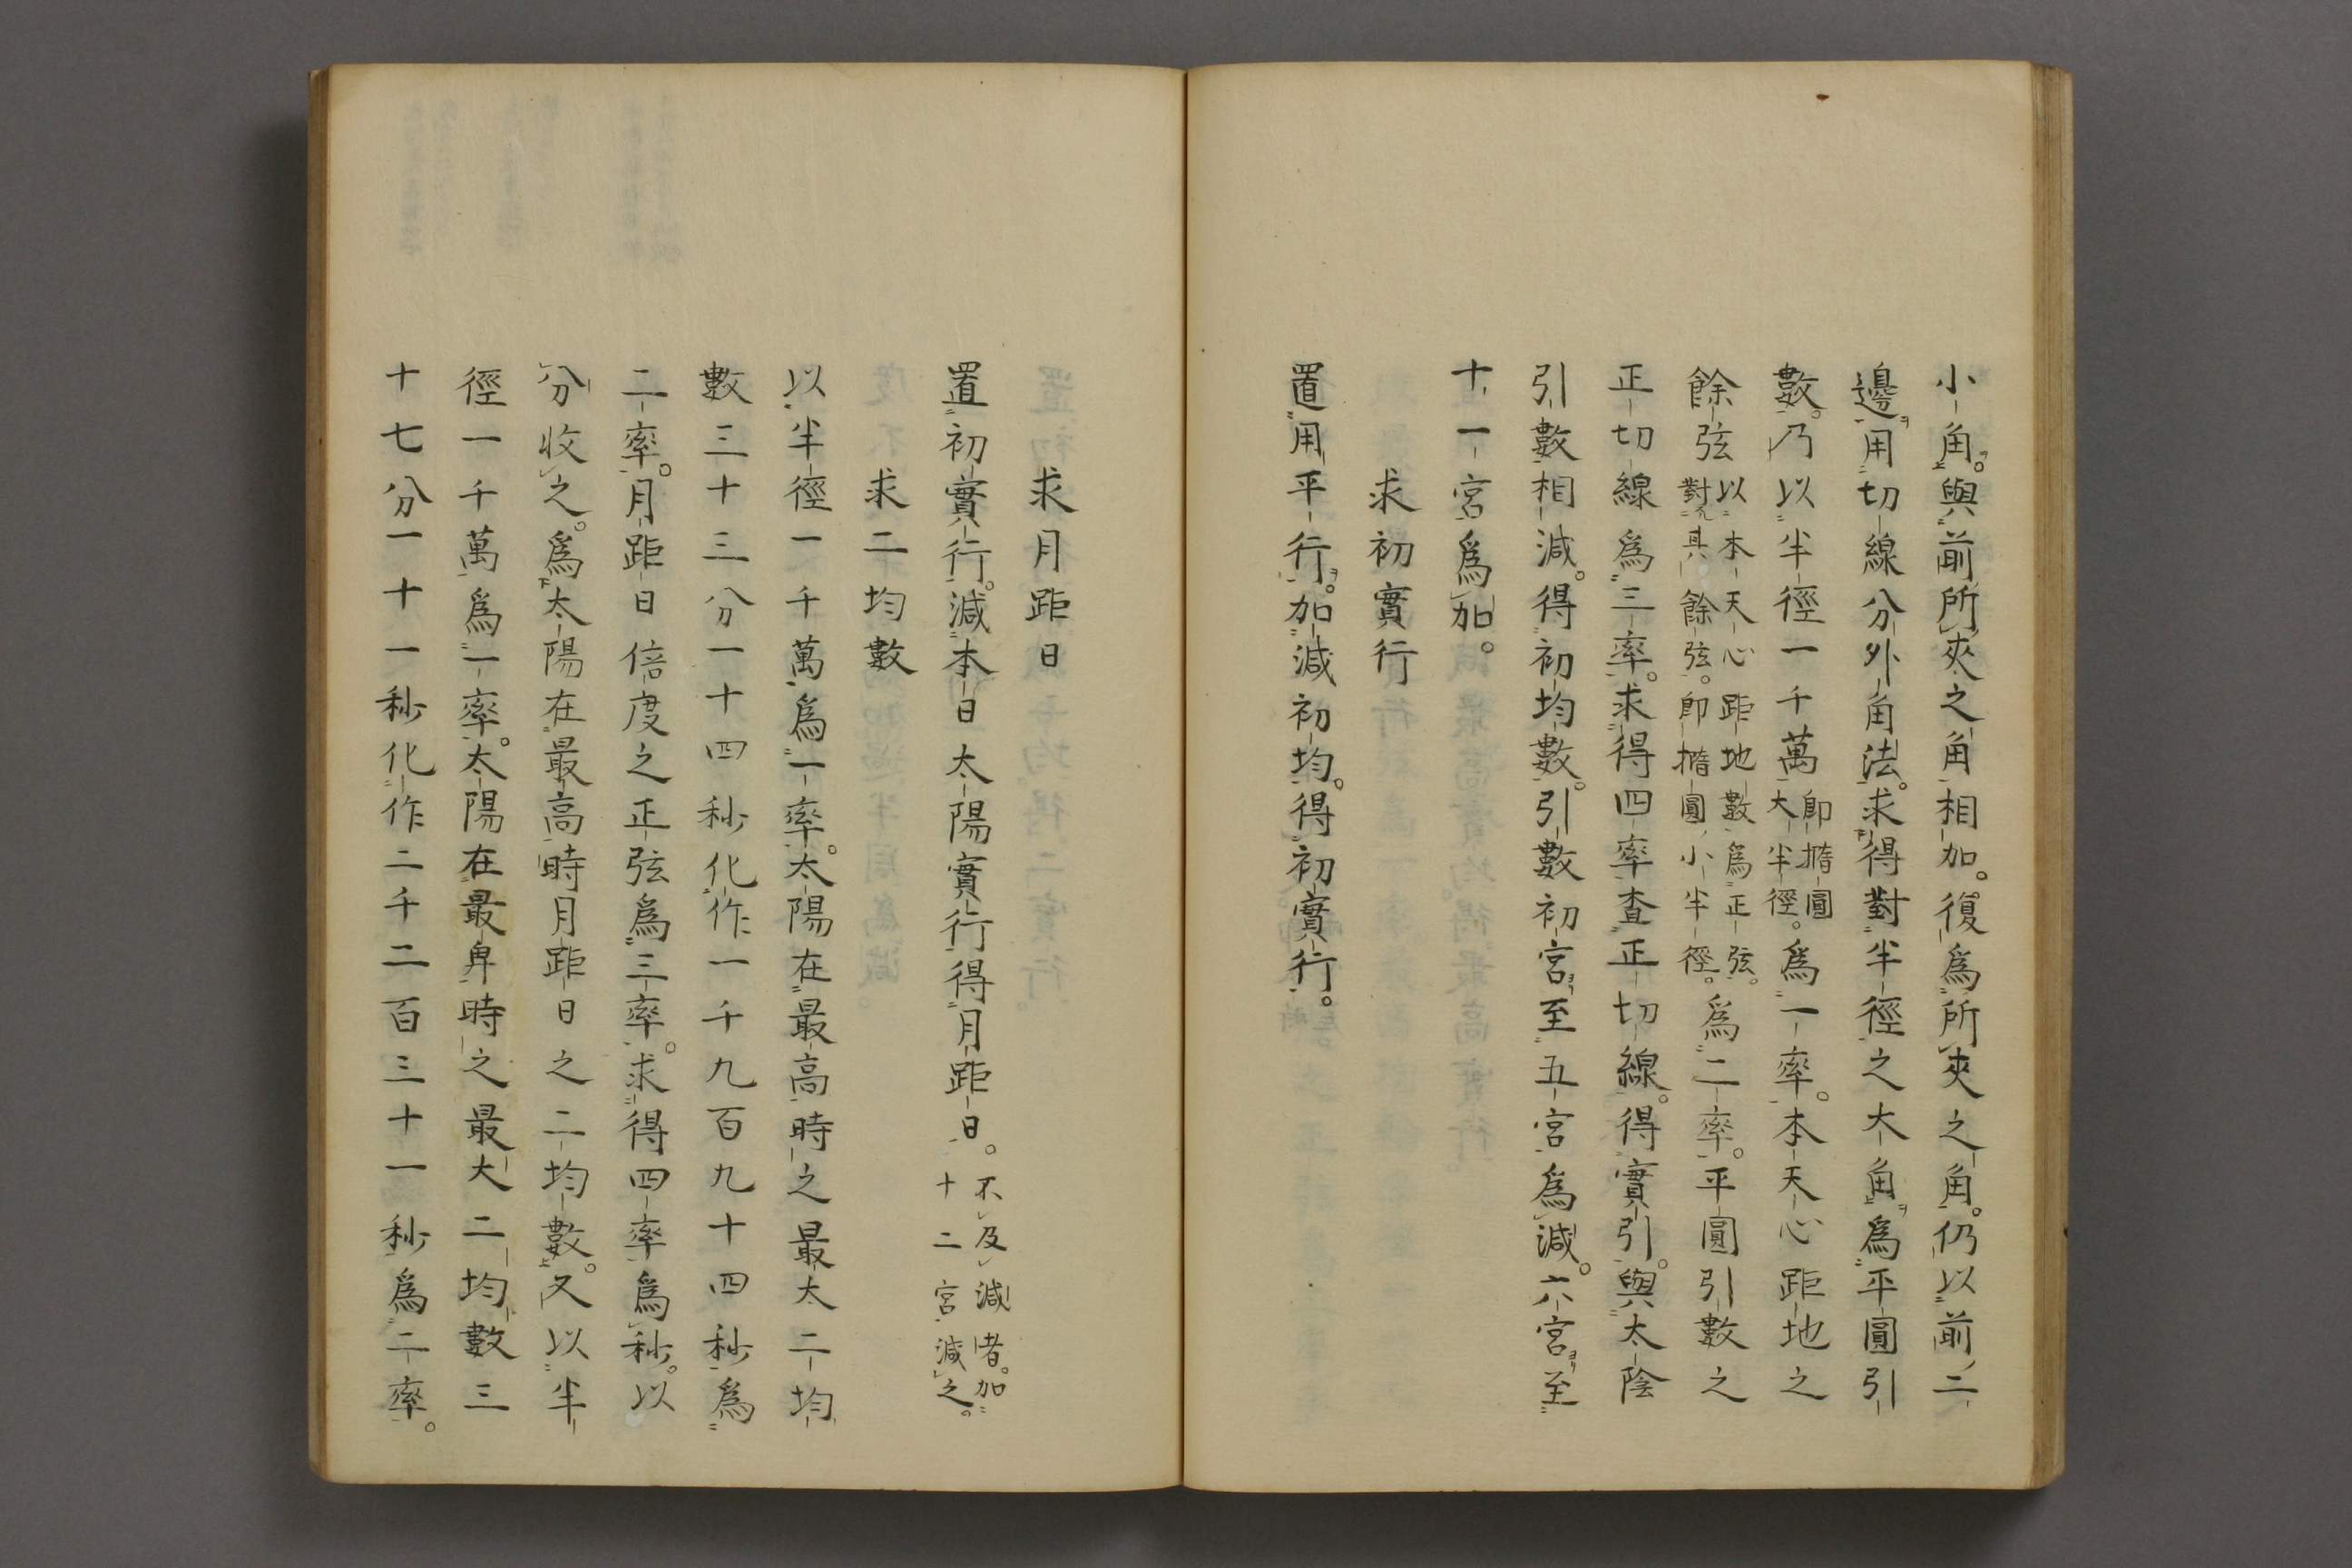 小角。與前所夾之角相加。復爲所夾之角。仍以前二
邊。用切線分外角法。求得對半徑之大角。爲平圓引
數。乃以半徑一千萬即橢圓大半徑。爲一率。本天心距地之
餘弦以本天心距地數爲正弦。對其餘弦。即橢圓小半徑。爲二率。平圓引數之
正切線爲三率。求得四率查正切線。得實引。與太陰
引數相減。得初均數。引數初宮至五宮爲減。六宮至
十一宮爲加。
求初實行
置用平行。加減初均。得初實行。
求月距日
置初實行。減本日太陽實行得月距日。不及減者。加十二宮減之。
求二均數
以半徑一千萬爲一率。太陽在最高時之最大二均
數三十三分一十四秒化作一千九百九十四秒爲
二率。月距日倍度之正弦爲三率。求得四率爲秒。以
分收之。爲太陽在最高時月距日之二均數。又以半
徑一千萬爲一率。太陽在最卑時之最大二均數三
十七分一十一秒化作二千二百三十一秒爲二率。